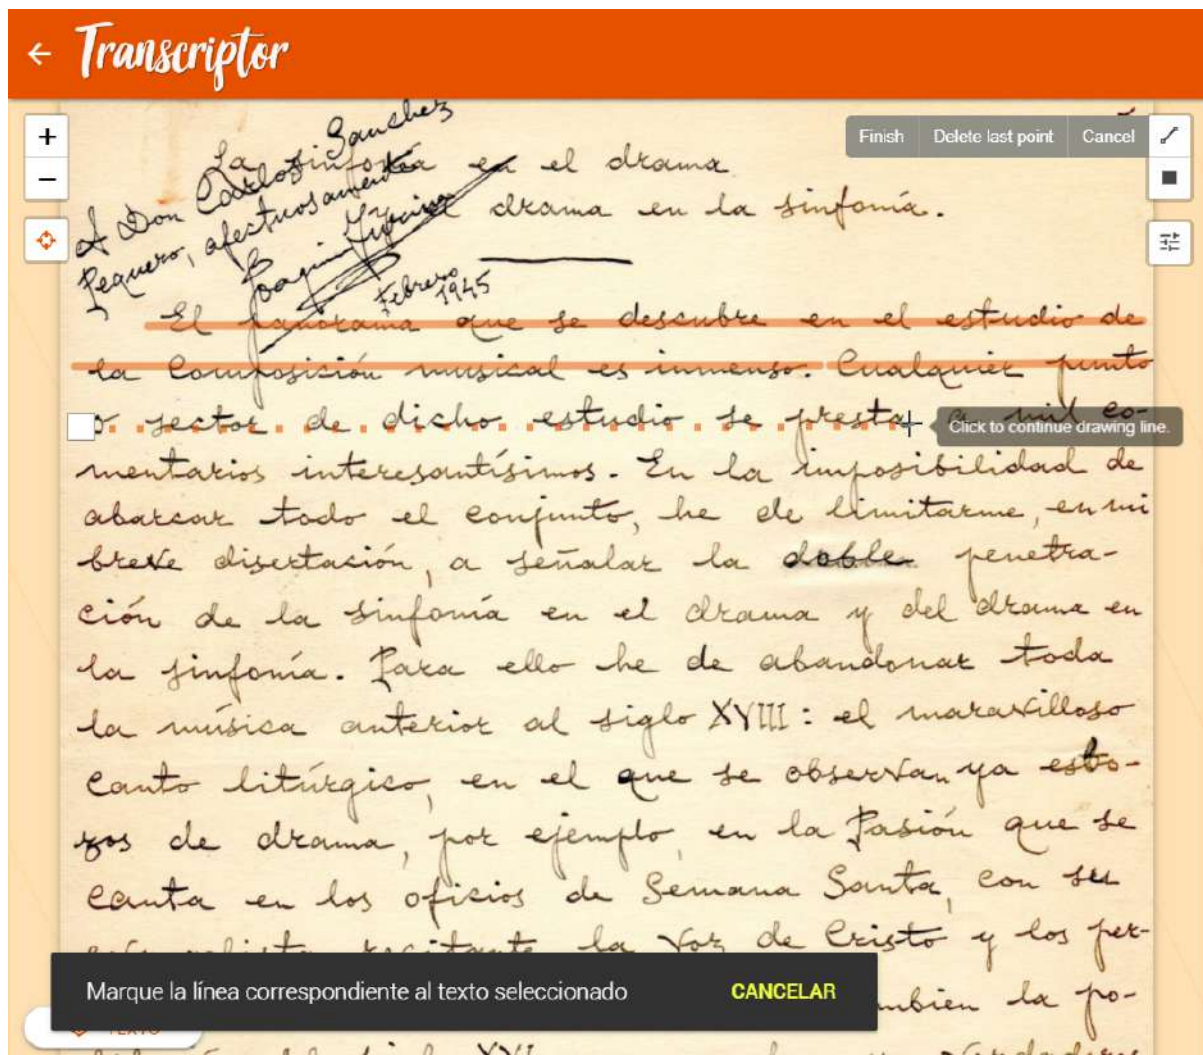 Transcriptor
Finish Delete last point Cancel
La sinfonía en el drama
drama en la sinfonía.
A Don Carlos Sanchez
Pequero, afectuosamente
Joaquin
Febrero
1945
El panorama que se descubre en el estudio de
la composición musical es inmenso. Cualquier punto
o sector de dicho estudio se presta a mil co-
Click to continue drawing line.
mentarios interesantísimos. En la imposibilidad de
abarcar todo el conjunto, he de limitarme, en mi
breve disertación, a señalar la doble penetra-
ción de la sinfonía en el drama y del drama en
la sinfonía. Para ello he de abandonar toda
la música anterior al siglo XVIII: el maravilloso
canto litúrgico, en el que se observan ya esbo-
zos de drama, por ejemplo, en la Pasión que se
canta en los oficios de Semana Santa, con su
recitante, la voz de Cristo y los per-
Marque la línea correspondiente al texto seleccionado CANCELAR
la po-
TEXTO
siglo XVI